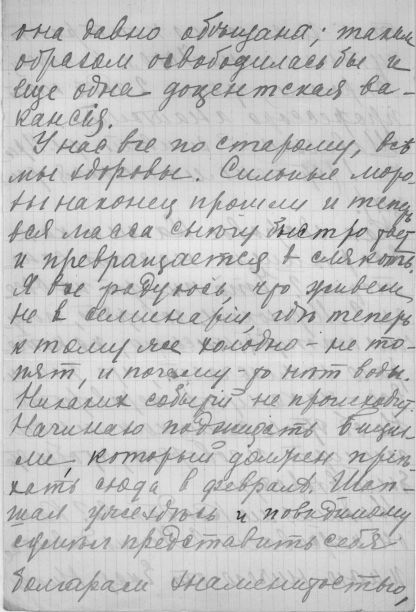 она давно обѣщана; таким
образом освободилась бы и
еще одна доцентская ва-
кансія.
У нас все по старому, всѣ
мы здоровы. Сильные моро
зы наконец прошли и теперь
вся масса снѣгу быстро тает
и превращается в слякоть
Я все радуюсь, что живем
не в семинаріи, гдѣ теперь
к тому же холодно - не то-
пят, и почему-то нѣт воды.
Никаких событій не происходит
Начинаю поджидать
который должен прiѣ-
хать сюда в февралѣ. Шап-
шал уже здѣсь и повидимому
сумѣл представить себя
болгарам знаменитостью,